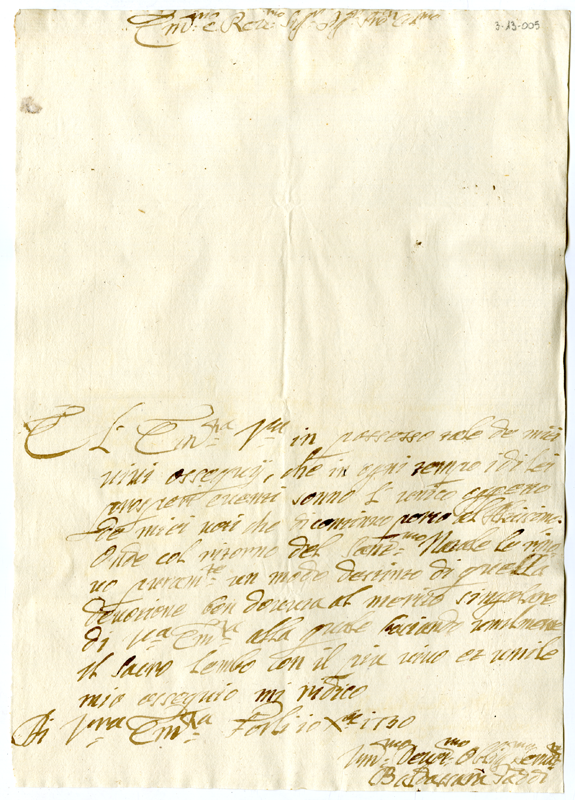 Em.mo e Rev.mo Sig.r Sig.r Pron Colmo
3-13-005
È L'Em.za V.ra in possesso tale de miei
vivi ossequij, che in ogni tempo i di lei
prosperi eventi sonno l'unico oggetto
de miei voti che di continuo porto al
Onde col ritorno del Sant.mo Natale le rino
vo un modo distinto di quella
devozione ben dovuta al merito singolare
di V.ra Em.za alla quale baciando umilmente
il sacro lembo con il piu vivo et umile
mio ossequio mi ratifico
Di V.ra Em.za Forlì 10 Xbre 1730
Um.mo Devot.mo Obblig.mo
Baldassarre